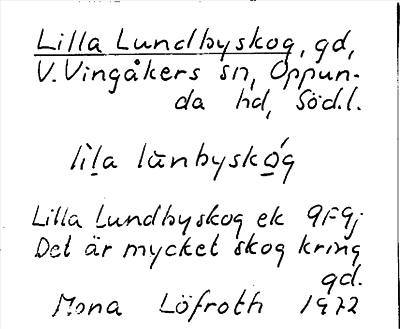 Lilla Lundbyskog, gd,
V. Vingåkers sn, Oppun-
da hd, Söd.l.
lìla lùnbyskóg
Lilla Lundbyskog ek 9F9j
Det är mycket skog kring
gd.
Mona Löfroth 1972